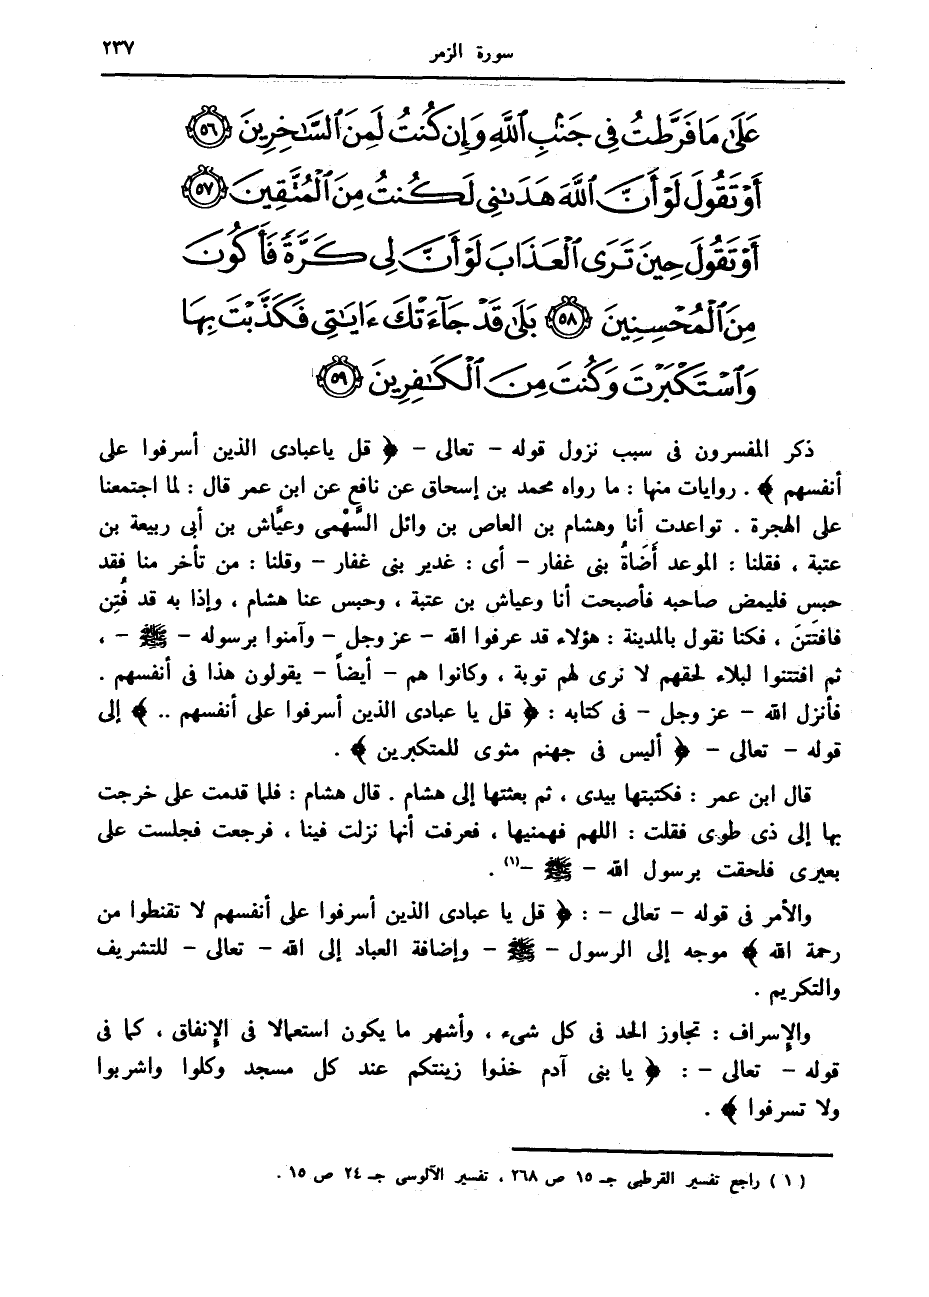 سورة الزمر
٢٣٧
عَلَىٰ مَا فَرَّطتُ فِي جَنۢبِ ٱللَّهِ وَإِن كُنتُ لَمِنَ ٱلسَّٰخِرِينَ ٥٦
أَوْ تَقُولَ لَوْ أَنَّ ٱللَّهَ هَدَىٰنِي لَكُنتُ مِنَ ٱلْمُتَّقِينَ ٥٧
أَوْ تَقُولَ حِينَ تَرَى ٱلْعَذَابَ لَوْ أَنَّ لِي كَرَّةً فَأَكُونَ
مِنَ ٱلْمُحْسِنِينَ ٥٨ بَلَىٰ قَدْ جَآءَتْكَ ءَايَٰتِي فَكَذَّبْتَ بِهَا
وَٱسْتَكْبَرْتَ وَكُنتَ مِنَ ٱلْكَٰفِرِينَ ٥٩
ذكر المفسرون فى سبب نزول قوله - تعالى - ﴿ قل ياعبادى الذين أسرفوا على
أنفسهم ﴾ . روايات منها : ما رواه محمد بن إسحاق عن نافع عن ابن عمر قال : لما اجتمعنا
على الهجرة . تواعدت أنا وهشام بن العاص بن وائل السَّهْمى وعيَّاش بن أبى ربيعة بن
عتبة ، فقلنا : الموعد أَضَاةُ بنى غفار - أى : غدير بنى غفار - وقلنا : من تأخر منا فقد
حبس فليمض صاحبه فأصبحت أنا وعياش بن عتبة ، وحبس عنا هشام ، وإذا به قد فُتِن
فافتَتَنَ ، فكنا نقول بالمدينة : هؤلاء قد عرفوا الله - عز وجل - وآمنوا برسوله - ﷺ - ،
ثم افتتنوا لبلاء لحقهم لا نرى لهم توبة ، وكانوا هم - أيضاً - يقولون هذا فى أنفسهم .
فأنزل الله - عز وجل - فى كتابه : ﴿ قل يا عبادى الذين أسرفوا على أنفسهم .. ﴾ إلى
قوله - تعالى - ﴿ أليس فى جهنم مثوى للمتكبرين ﴾ .
قال ابن عمر : فكتبتها بيدى ، ثم بعثتها إلى هشام . قال هشام : فلما قدمت على خرجت
بها إلى ذى طوى فقلت : اللهم فهمنيها ، فعرفت أنها نزلت فينا ، فرجعت فجلست على
بعيرى فلحقت برسول الله - ﷺ -(١) .
والأمر فى قوله - تعالى - : ﴿ قل يا عبادى الذين أسرفوا على أنفسهم لا تقنطوا من
رحمة الله ﴾ موجه إلى الرسول - ﷺ - وإضافة العباد إلى الله - تعالى - للتشريف
والتكريم .
والإسراف : تجاوز الحد فى كل شىء ، وأشهر ما يكون استعمالا فى الإنفاق ، كما فى
قوله - تعالى - : ﴿ يا بنى آدم خذوا زينتكم عند كل مسجد وكلوا واشربوا
ولا تسرفوا ﴾ .
(١) راجع تفسير القرطبى جـ ١٥ ص ٢٦٨ ، تفسير الآلوسى جـ ٢٤ ص ١٥ .